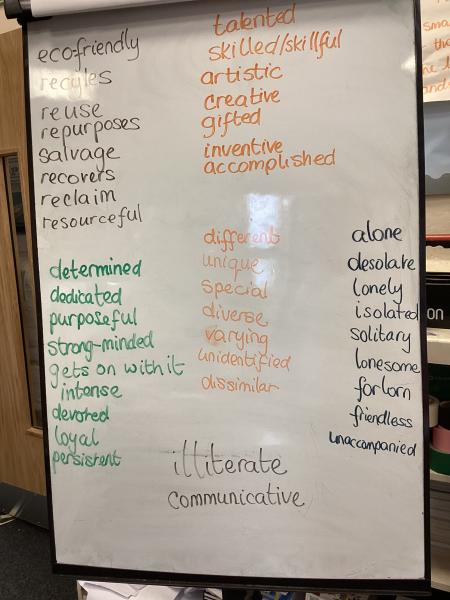 eco-friendly
recyles
reuse
repurposes
salvage
recovers
reclaim
resourceful
talented
skilled/skillful
artistic
creative
gifted
inventive
accomplished
determined
dedicated
purposeful
strong-minded
gets on with it
intense
devoted
loyal
persistent
different
unique
special
diverse
varying
unidentified
dissimilar
alone
desolate
lonely
isolated
solitary
lonesome
forlorn
friendless
unaccompanied
illiterate
communicative
on